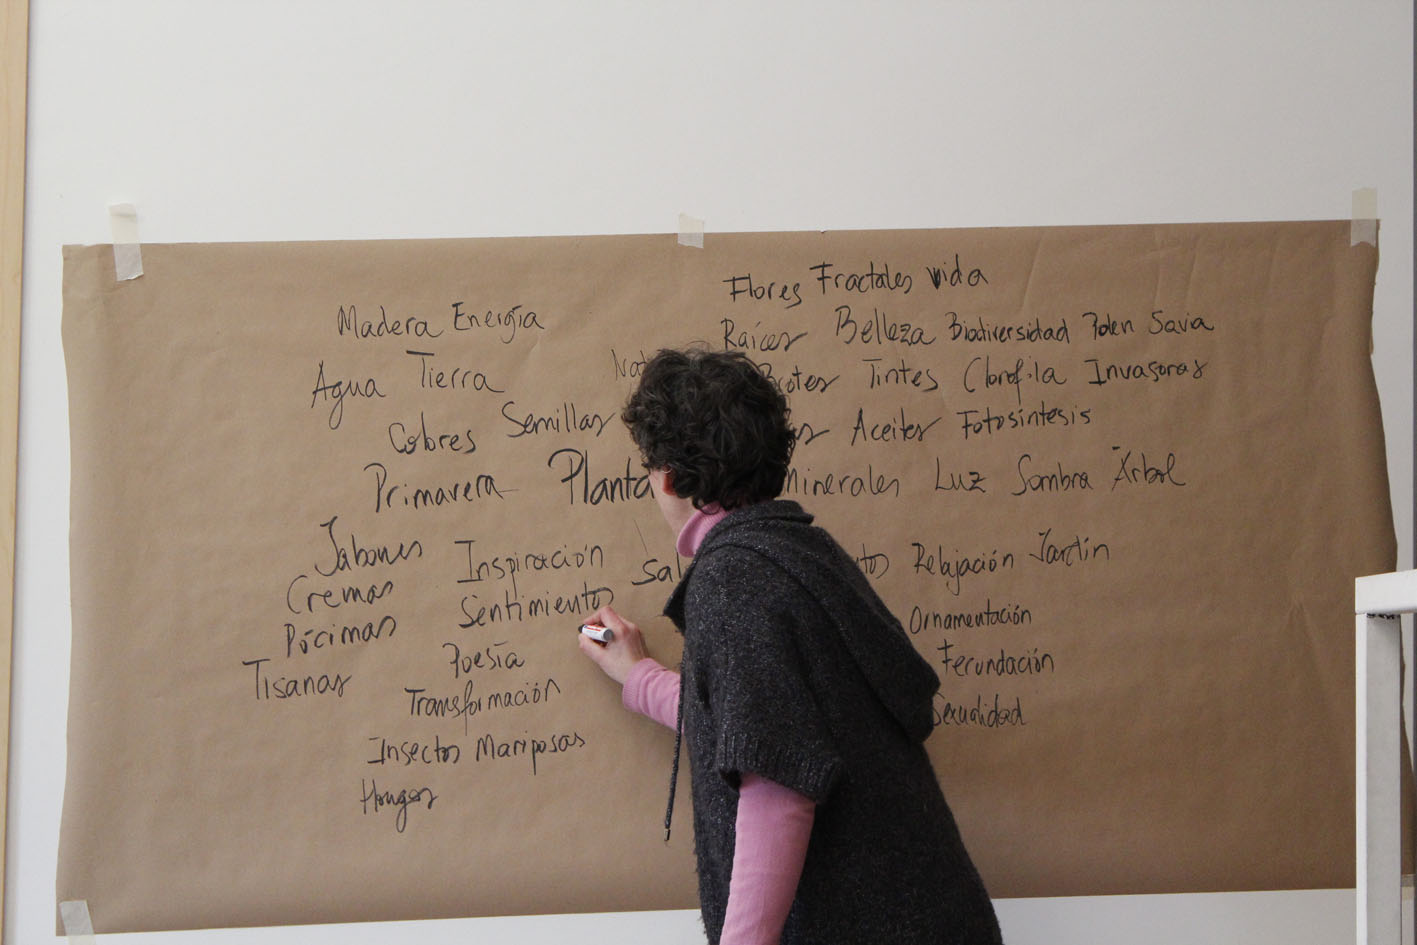 Flores Fractales vida
Madera Energía
Raíces Belleza Biodiversidad Polen Savia
Agua Tierra
Brotes Tintes Clorofila Invasoras
Cobres Semillas
Aceites Fotosíntesis
Primavera Planta
Minerales Luz Sombra Árbol
Jabones Inspiración
Relajación Jardín
Cremas Sentimientos
Ornamentación
Pócimas Poesía
Fecundación
Tisanas Transformación
Sexualidad
Insectos Mariposas
Hongos